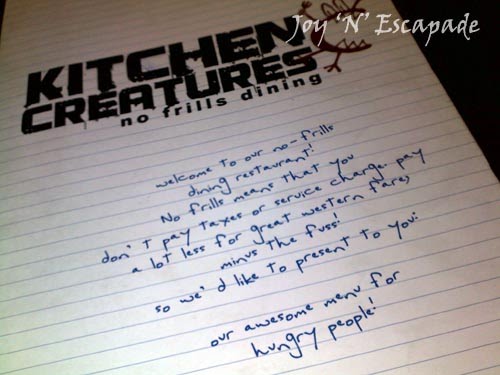 Joy 'N' Escapade
KITCHEN
CREATURES
no frills dining
welcome to our no-frills
dining restaurant!
No frills means that you
don't pay taxes or service charge. pay
a lot less for great western fare,
minus the fuss!
so we'd like to present to you:
our awesome menu for
hungry people!